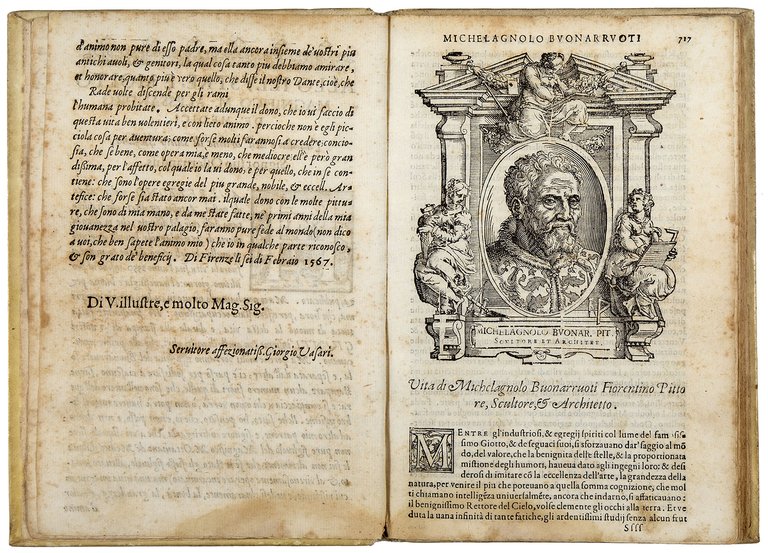 d'animo non pure di esso padre, ma ella ancora insieme de' vostri piu
antichi auoli, & genitori, la qual cosa tanto piu debbiamo amirare,
et honorare, quanto piu è vero quello, che disse il nostro Dante, cioè, che
Rade uolte discende per gli rami
l'humana probitate. Accettate adunque il dono, che io vi faccio di
questa vita ben volentieri, e con lieto animo. percioche non è egli pic-
ciola cosa per auentura; come forse molti farannosi a credere: concio-
sia, che se bene, come opera mia, e meno, che mediocre ell'è però gran
dissima, per l'affetto, col quale io la ui dono; e per quello, che in se con-
tiene: che sono l'opere egregie del piu grande, nobile, & eccell. Ar-
tefice: che forse sia stato ancor mai. ilquale dono con le molte pittu-
re, che sono di mia mano, e da me state fatte, ne' primi anni della mia
giouanezza nel vostro palagio, faranno pure fede al mondo (non dico
a voi, che ben sapete l'animo mio) che io in qualche parte riconosco,
& son grato de' beneficij. Di Firenze li sei di Febraio 1567.
Di V. illustre, e molto Mag. Sig.
Seruitore affezionatiss. Giorgio Vasari.
MICHELAGNOLO BVONARRVOTI 717
MICHELAGNOLO BVONAR. PIT.
SCVLTORE ET ARCHITET.
Vita di Michelagnolo Buonarruoti Fiorentino Pitto
re, Scultore, & Architetto.
MENTRE gl'industriosi, & egregij spiriti col lume del famosis-
simo Giotto, & de seguaci suoi, si sforzauano dar' saggio al mō
do, del valore, che la benignita delle stelle, & la proportionata
mistione degli humori, haueua dato agli ingegni loro: & desi
derosi di imitare cō la eccellenza dell'arte, la grandezza della
natura, per venire il piu che poteuano a quella somma cognizione, che mol
ti chiamano intelligēza uniuersalmēte, ancora che indarno, si affaticauano:
il benignissimo Rettore del Cielo, volse clemente gli occhi alla terra. Et ve
duta la uana infinità di tante fatiche, gli ardentissimi studij senza alcun frut
Sss